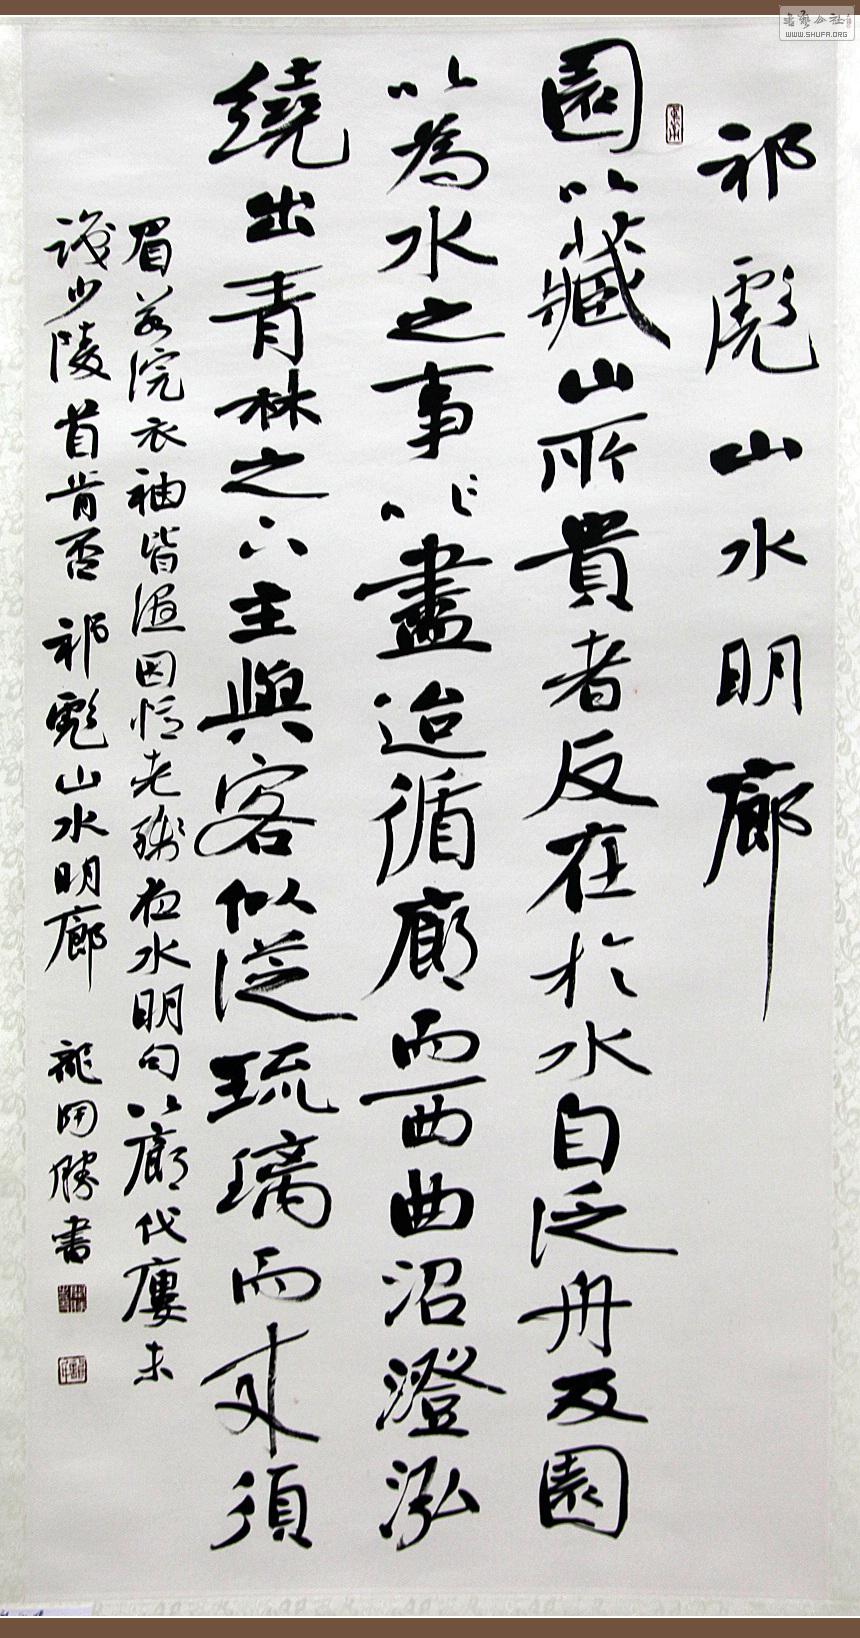 祁彪山水明廊
園以藏山所貴者反在於水自泛舟及園
以為水之事盡迨循廊而西曲沼澄泓
繞出青林之下主與客似從琉璃而来須
眉若浣衣袖皆濕因老殘夜水明句以廊代廔未
識少陵首肯否 祁彪山水明廊 龍開勝書
书艺公社
WWW.SHUFA.ORG